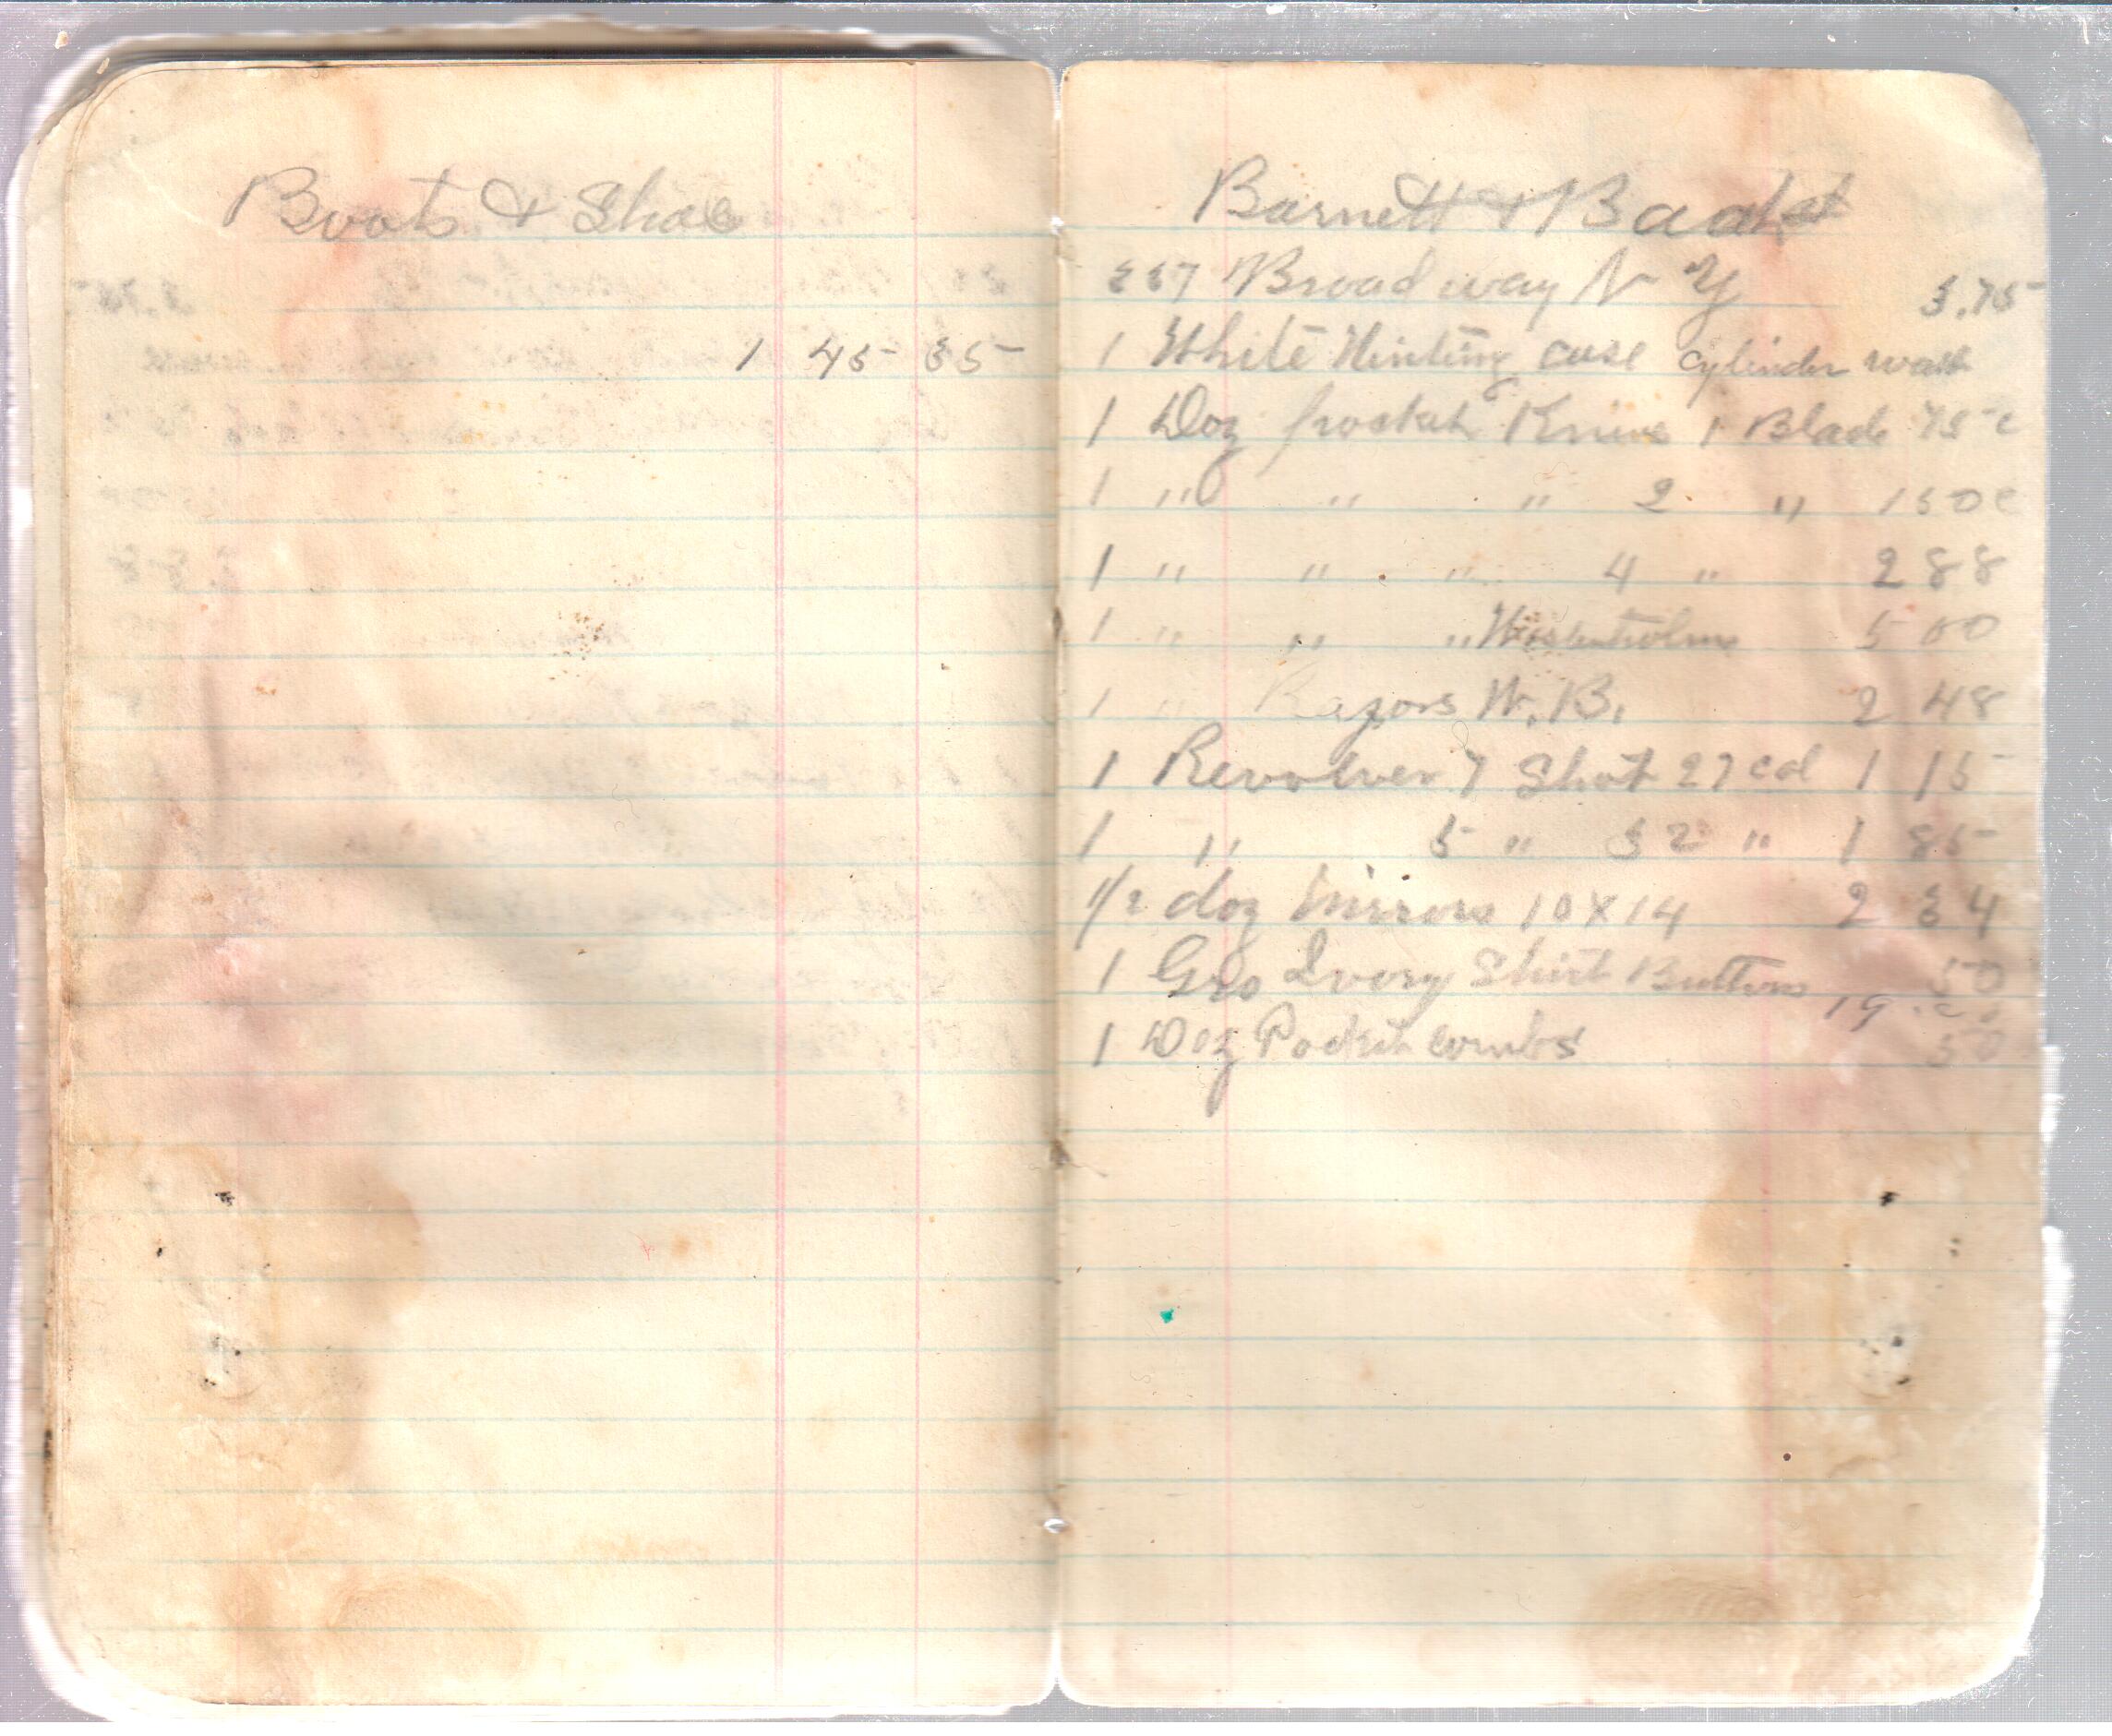 Boots & Shoe
1 45 35
Barnett &
337 Broadway N Y 3.75
1 White Hunting case cylinder
1 Doz Knives 1 Blade 75 c
1 " " " 2 " 150 c
1 " " " 4 " 2 88
1 " " " Wostenholms 5 00
1 " Razors W. B. 2 48
1 Revolver 7 Shot 27 cal 1 15
1 " 5 " 32 " 1 85
1/2 doz Mirrors 10 X 14 2 34
1 Gro Ivory Shirt Buttons 50
1 Doz Pocket combs 50